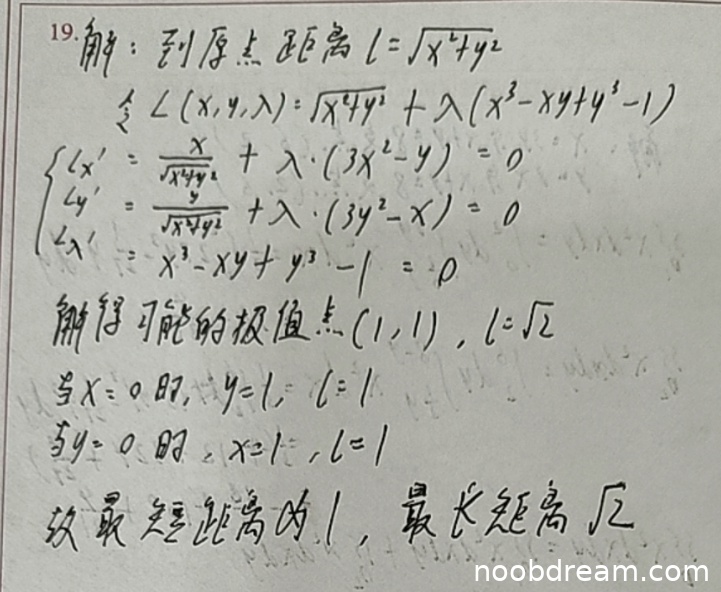 19. 解：到原点距离 l=√(x²+y²)
令 L(x,y,λ)=√(x²+y²) + λ(x³-xy+y³-1)
Lx' = x/√(x²+y²) + λ·(3x²-y) = 0
Ly' = y/√(x²+y²) + λ·(3y²-x) = 0
Lλ' = x³-xy+y³-1 = 0
解得可能的极值点(1,1), l=√2
当x=0时, y=1, l=1
当y=0时, x=1, l=1
故最短距离为1, 最长距离√2
noobdream.com